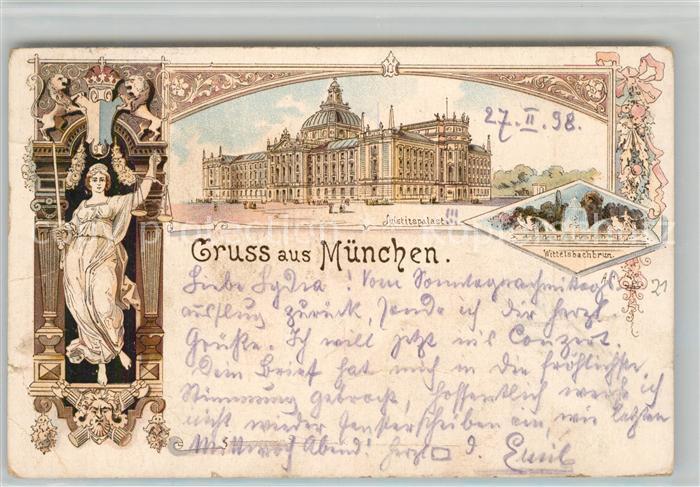 27. II. 98.
Justitspalast.!!!
Wittelsbachbrun.
Gruss aus München.
Liebe Lydia! Vom Sonntagnachmittags-
ausflug zurück, sende ich dir herzl.
Grüße. Ich will jetzt ins Conzert.
Dein Brief hat mich in die fröhlichste
Stimmung gebracht, hoffentlich werde ich
nicht wieder Fensterscheiben ein wie letzten
Mittwoch Abend! herzl □ d. Emil
21